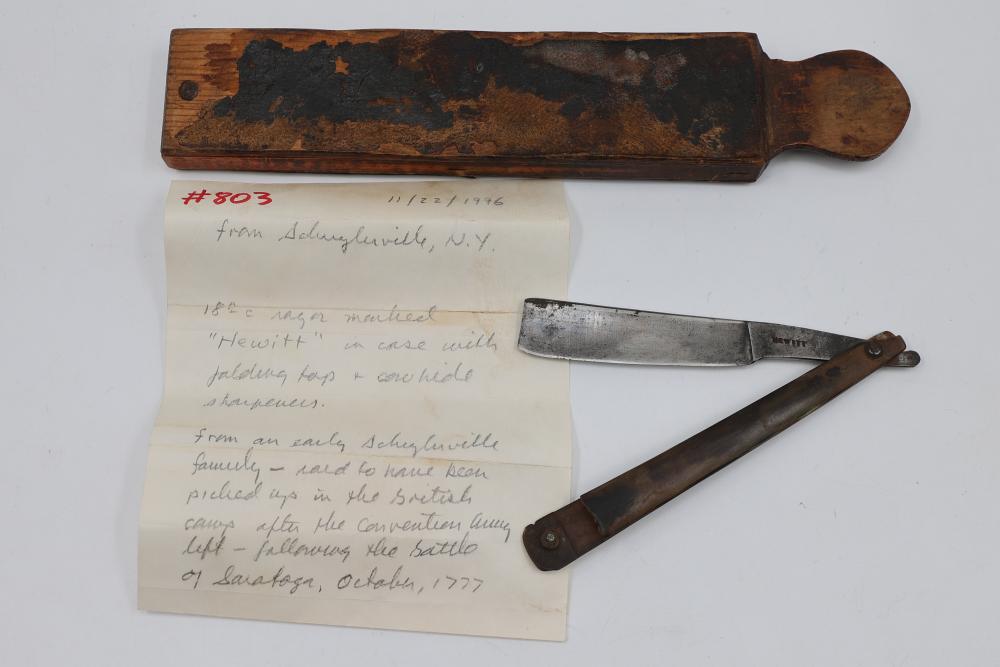 #803 11/22/1996
from Schuylerville, N.Y.
18th c razor marked
"Hewitt" in case with
folding top + cowhide
sharpeners.
From an early Schuylerville
family – said to have been
picked up in the British
camp after the Convention Army
left – following the Battle
of Saratoga, October, 1777
HEWITT